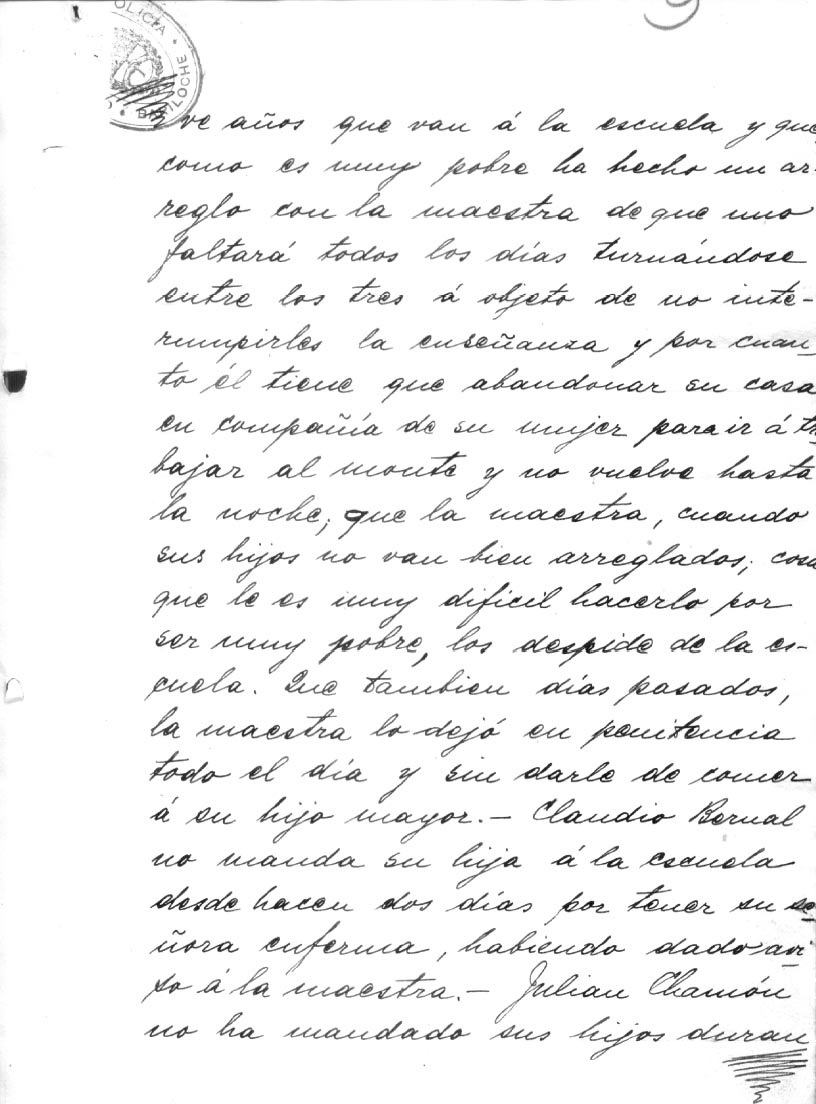 POLICIA • BARILOCHE •
9
ve años que van á la escuela y que
como es muy pobre ha hecho un ar-
reglo con la maestra de que uno
faltará todos los días turnándose
entre los tres á objeto de no inte-
rrumpirles la enseñanza y por cuan
to él tiene que abandonar su casa
en compañía de su mujer para ir á tra
bajar al monte y no vuelve hasta
la noche; que la maestra, cuando
sus hijos no van bien arreglados; cosa
que le es muy dificil hacerlo por
ser muy pobre, los despide de la es-
cuela. Que tambien días pasados,
la maestra lo dejó en penitencia
todo el día y sin darle de comer
á su hijo mayor.- Claudio Bernal
no manda su hija á la escuela
desde hacen dos días por tener su se
ñora enferma, habiendo dado avi
so á la maestra.- Julian Chamón
no ha mandado sus hijos duran